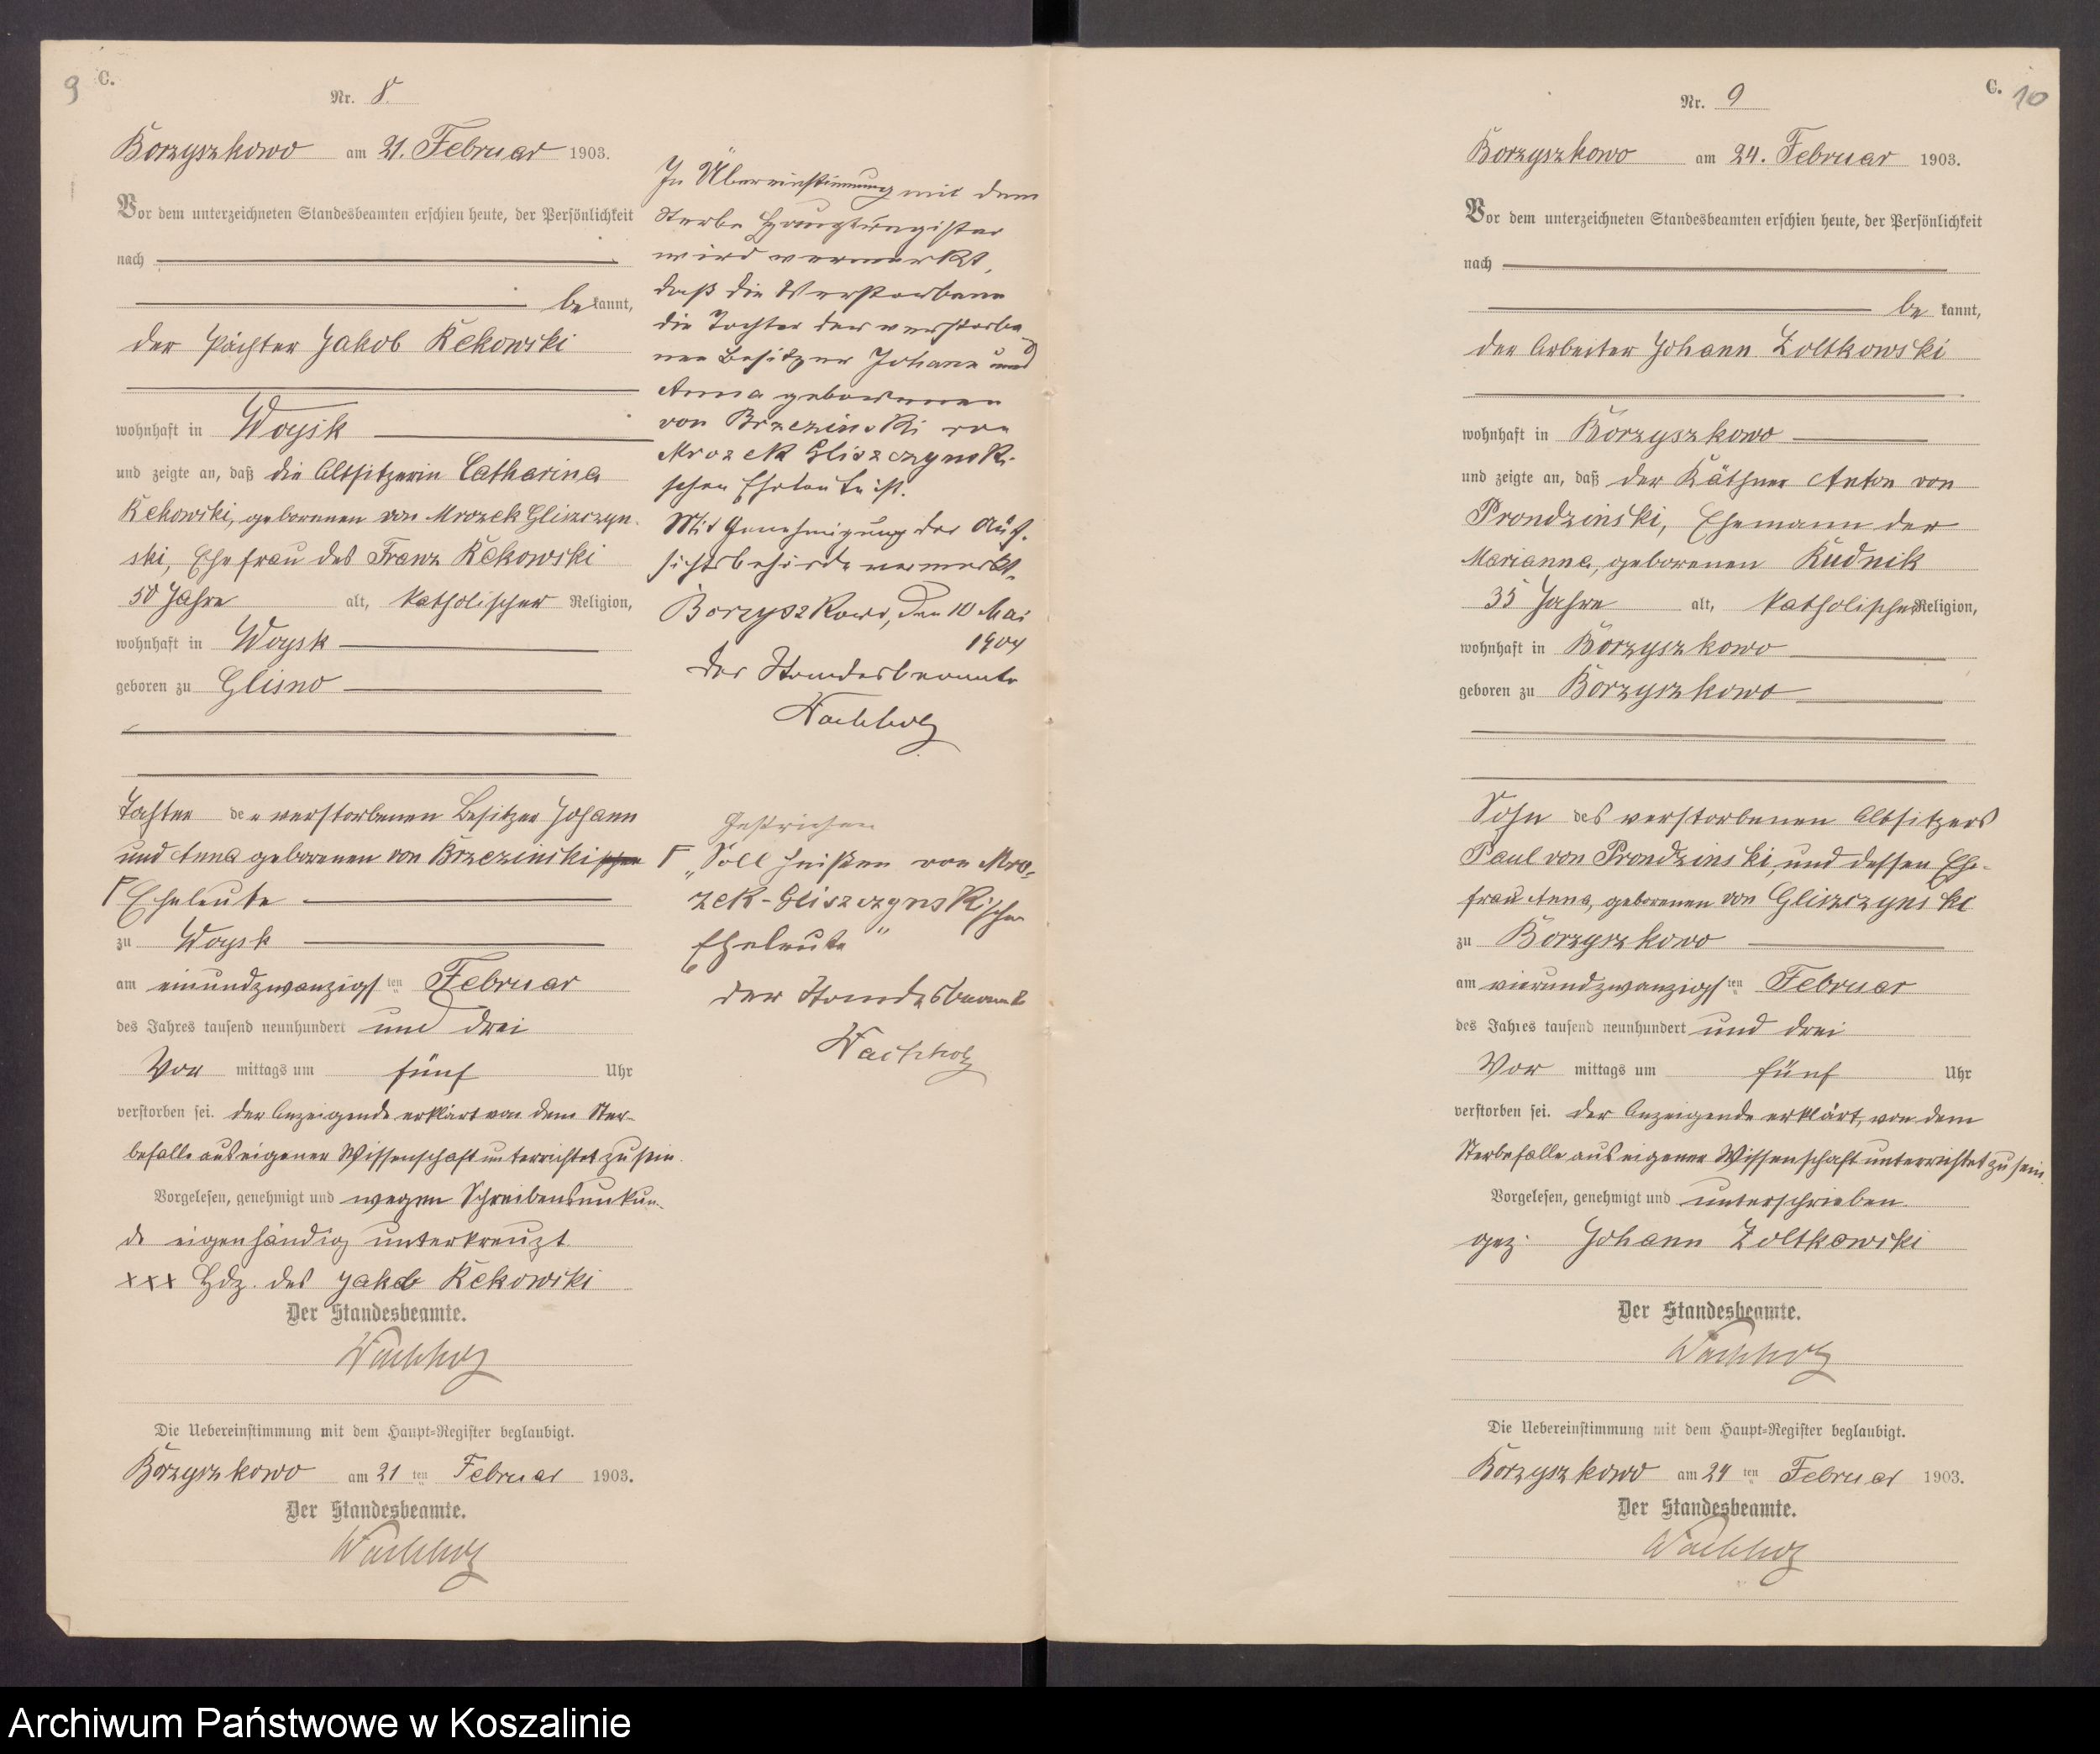 9 C.
Nr. 8.
Borzyszkowo am 21. Februar 1903.
Vor dem unterzeichneten Standesbeamten erschien heute, der Persönlichkeit
nach
be kannt,
der Pächter Jakob Kekowski
wohnhaft in Woysk
und zeigte an, daß die Altsitzerin Catharina
Kekowski, geborenen von Mrozek Gliszczyn-
ski, Ehefrau des Franz Kekowski
50 Jahre alt, katholischer Religion,
wohnhaft in Woysk
geboren zu Glisno
Tochter der verstorbenen Besitzer Johann
und Anna geborenen von Brzezinskischen
Γ Eheleute
zu Woysk
am einundzwanzigsten Februar
des Jahres tausend neunhundert und drei
Vor mittags um fünf Uhr
verstorben sei. Der Anzeigende erklärt von dem Ster-
befalle aus eigener Wissenschaft unterrichtet zu sein.
Vorgelesen, genehmigt und wegen Schreibensunkun-
de eigenhändig unterkreuzt.
xxx Hdz. des Jakob Kekowski
Der Standesbeamte.
Wachholz
Die Uebereinstimmung mit dem Haupt-Register beglaubigt.
Borzyszkowo am 21 ten Februar 1903.
Der Standesbeamte.
Wachholz
In Übereinstimmung mit dem
Sterbe Hauptregister
wird vermerkt,
daß die Verstorbene
die Tochter der verstorbe-
nen Besitzer Johann und
Anna geborenen
von Brzezinski von
Mrozek Gliszczynski-
schen Eheleute ist.
Mit Genehmigung der Auf-
sichtsbehörde vermerkt.
Borzyszkowo, den 10 Mai
1904
Der Standesbeamte
Wachholz
Gestrichen
Γ „Soll heißen von Mro-
zek-Gliszczynskischen
Eheleute"
Der Standesbeamte
Wachholz
C. 10
Nr. 9
Borzyszkowo am 24. Februar 1903.
Vor dem unterzeichneten Standesbeamten erschien heute, der Persönlichkeit
nach
be kannt,
der Arbeiter Johann Zoltkowski
wohnhaft in Borzyszkowo
und zeigte an, daß der Käthner Anton von
Prondzinski, Ehemann der
Marianna, geborenen Kudnik
35 Jahre alt, katholischer Religion,
wohnhaft in Borzyszkowo
geboren zu Borzyszkowo
Sohn des verstorbenen Altsitzers
Paul von Prondzinski, und dessen Ehe-
frau Anna, geborenen von Gliszczynski
zu Borzyszkowo
am vierundzwanzigsten Februar
des Jahres tausend neunhundert und drei
Vor mittags um fünf Uhr
verstorben sei. Der Anzeigende erklärt, von dem
Sterbefalle aus eigener Wissenschaft unterrichtet zu sein.
Vorgelesen, genehmigt und unterschrieben.
gez. Johann Zoltkowski
Der Standesbeamte.
Wachholz
Die Uebereinstimmung mit dem Haupt-Register beglaubigt.
Borzyszkowo am 24 ten Februar 1903.
Der Standesbeamte.
Wachholz
Archiwum Państwowe w Koszalinie